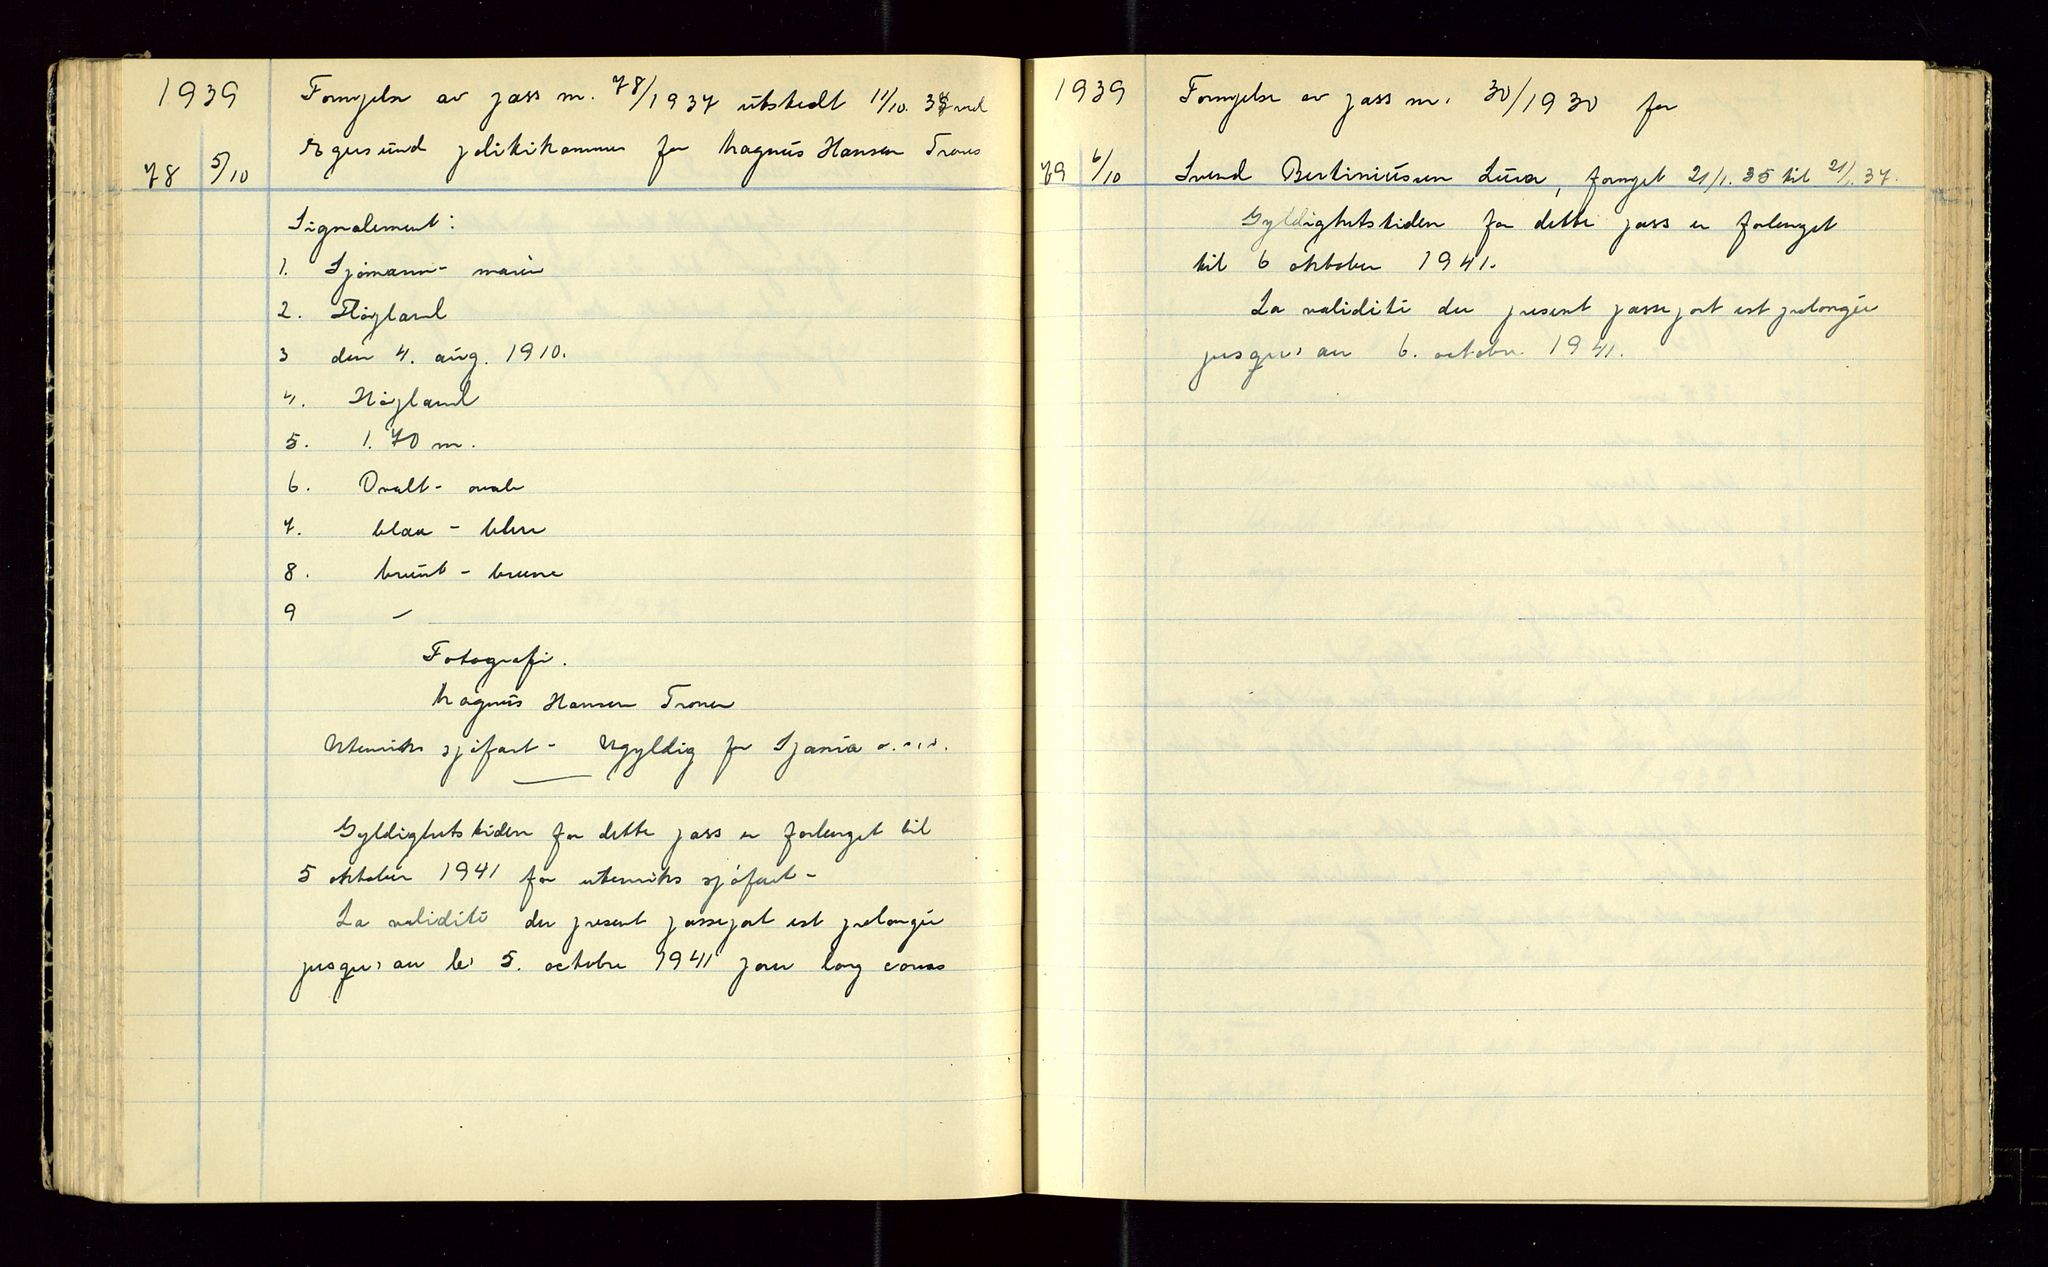 1939 Fornyelse av pass nr. 78/1937 utstedt 11/10. 37 ved
78 5/10 Egersund politikammer for Magnus Hansen Trones
Signalement:
1. Sjømann - marin
2. Høyland
3 den 4. aug. 1910.
4. Høyland
5. 1.70 m.
6. Ovalt - ovale
7. blaa - bleu
8. brunt - brune
9 -
Fotografi.
Magnus Hansen Trones
Utenriks sjøfart - Ugyldig for Spania o.s.v.
Gyldighetstiden for dette pass er forlenget til
5 oktober 1941 for utenriks sjøfart -
La validité du present passeport est prolongée
jusqu'au le 5. octobre 1941 pour long cours
1939 Fornyelse av pass nr. 30/1930 for
79 6/10 Svend Bertiniusen Lura, fornyet 21/1. 35 til 21/1. 37.
Gyldighetstiden for dette pass er forlenget
til 6 oktober 1941.
La validité du present passeport est prolongée
jusqu'au 6. octobre 1941.